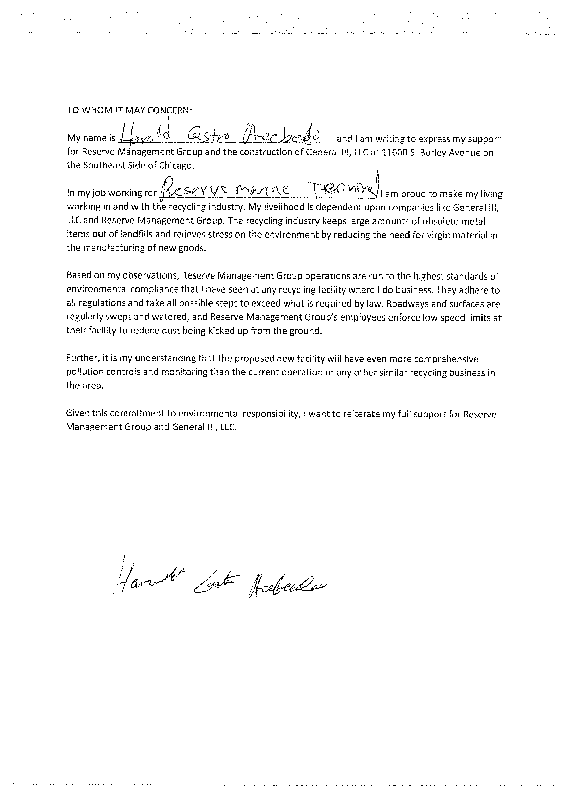 TO WHOM IT MAY CONCERN:
My name is Harold Castro and I am writing to express my support
for Reserve Management Group and the construction of General III, LLC at 11600 S. Burley Avenue on
the Southeast Side of Chicago.
In my job working for Reserve marine Terminal I am proud to make my living
working in and with the recycling industry. My livelihood is dependent upon companies like General III,
LLC and Reserve Management Group. The recycling industry keeps large amounts of obsolete metal
items out of landfills and relieves stress on the environment by reducing the need for virgin material in
the manufacturing of new goods.
Based on my observations, Reserve Management Group operations are run to the highest standards of
environmental compliance that I have seen at any recycling facility where I do business. They adhere to
all regulations and take all possible steps to exceed what is required by law. Roadways and surfaces are
regularly swept and watered, and Reserve Management Group's employees enforce low speed limits at
their facility to reduce dust being kicked up from the ground.
Further, it is my understanding that the proposed new facility will have even more comprehensive
pollution controls and monitoring than the current operation or any other similar recycling business in
the area.
Given this commitment to environmental responsibility, I want to reiterate my full support for Reserve
Management Group and General III, LLC.
Harold